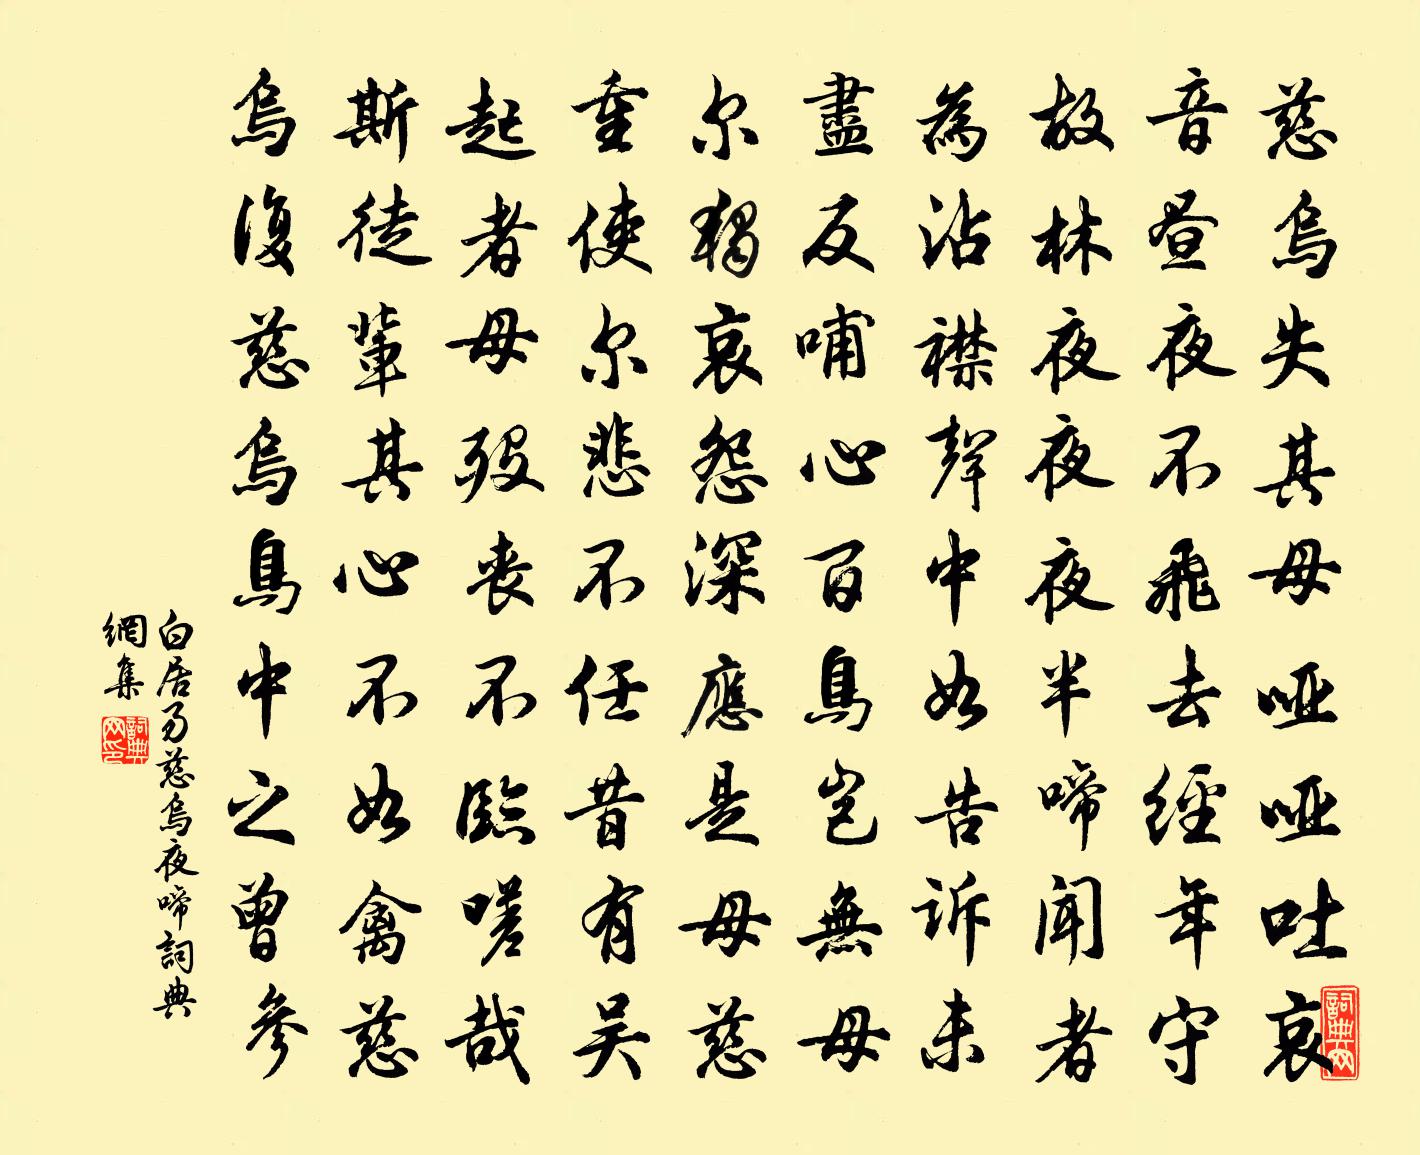 慈烏失其母哑哑吐哀
音昼夜不飛去經年守
故林夜夜夜半啼闻者
為沾襟聲中如告诉未
盡反哺心百鳥岂無母
尔獨哀怨深應是母慈
重使尔悲不任昔有吴
起者母殁丧不臨嗟哉
斯徒輩其心不如禽慈
烏復慈烏鳥中之曾參
白居易慈烏夜啼詞典
網集
詞典网
詞典网印